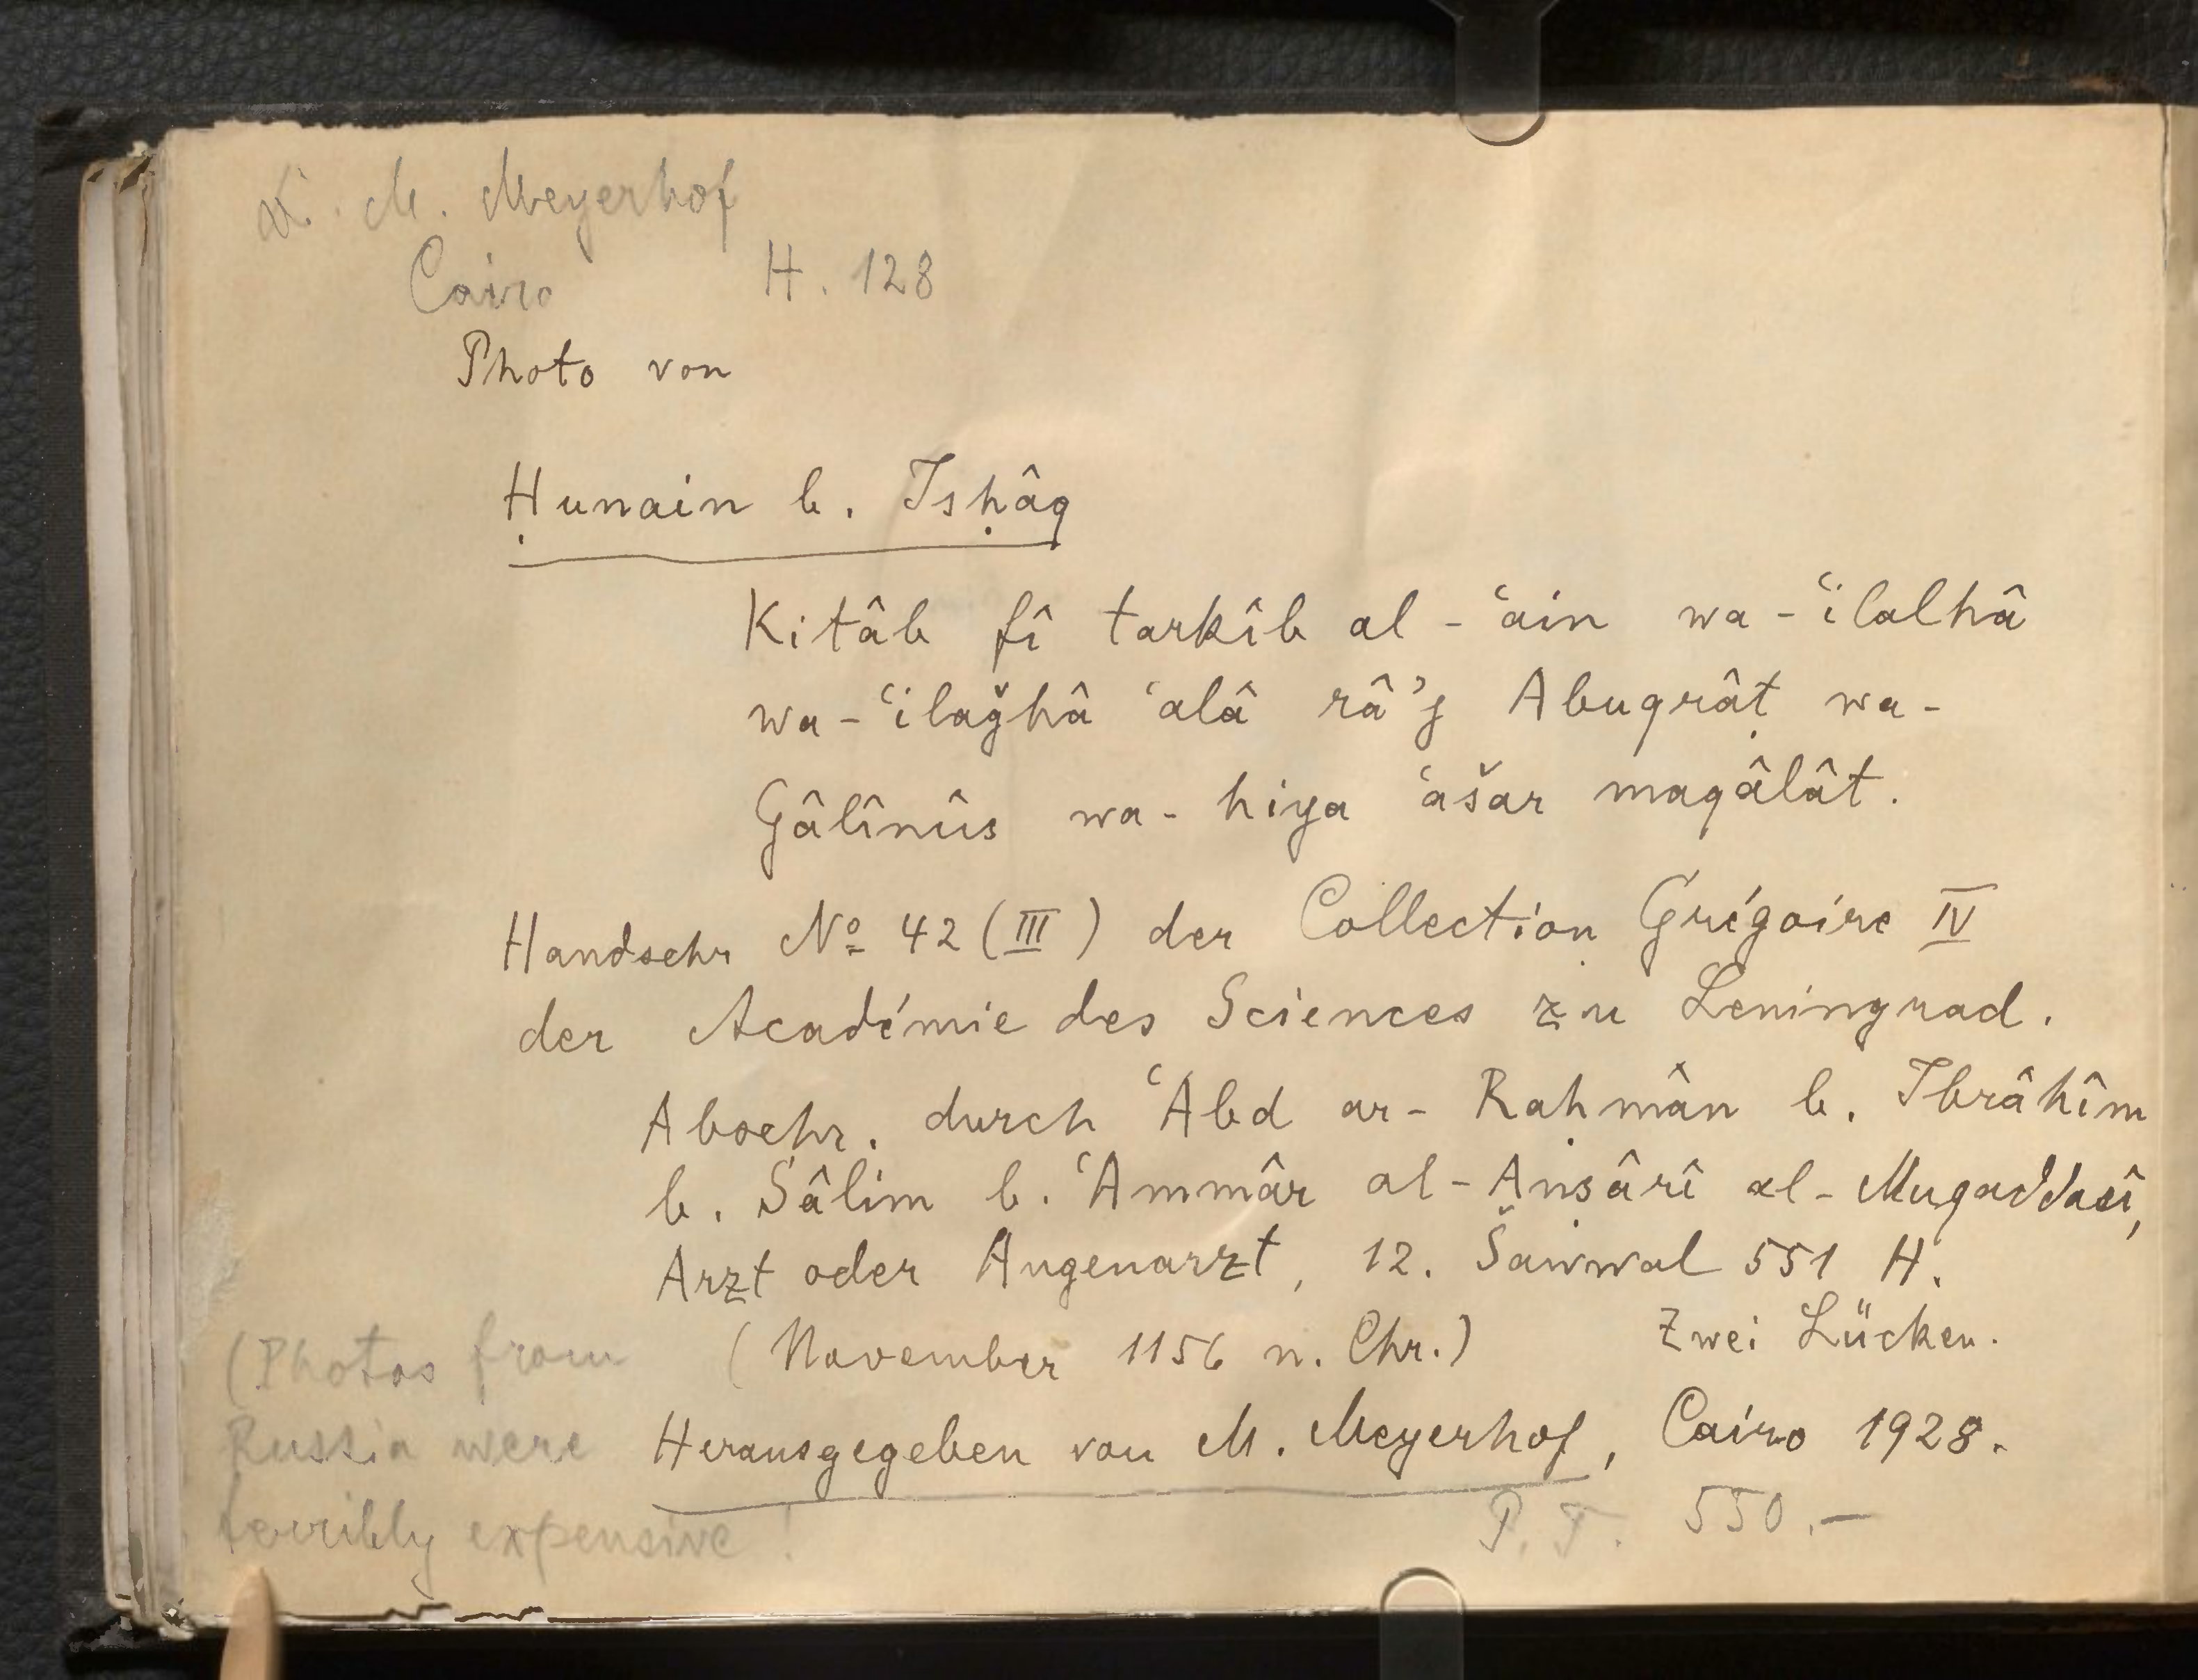 Dr. M. Meyerhof
Cairo H. 128
Photo von
Ḥunain b. Isḥâq
Kitâb fî tarkîb al-ʿain wa-ʿilalhâ
wa-ʿilaǧhâ ʿalâ râʾj Abuqrâṭ wa-
Ǧâlînûs wa-hiya ʿašar maqâlât.
Handschr Nº 42 (III) der Collection Grégoire IV
der Académie des Sciences zu Leningrad.
Abschr. durch ʿAbd ar-Raḥmân b. Ibrâhîm
b. Sâlim b. ʿAmmâr al-Anṣârî al-Muqaddasî,
Arzt oder Augenarzt, 12. Šawwal 551 H.
(November 1156 n. Chr.) Zwei Lücken.
Herausgegeben von M. Meyerhof, Cairo 1928.
P.T. 550.—
(Photos from
Russia were
terribly expensive!